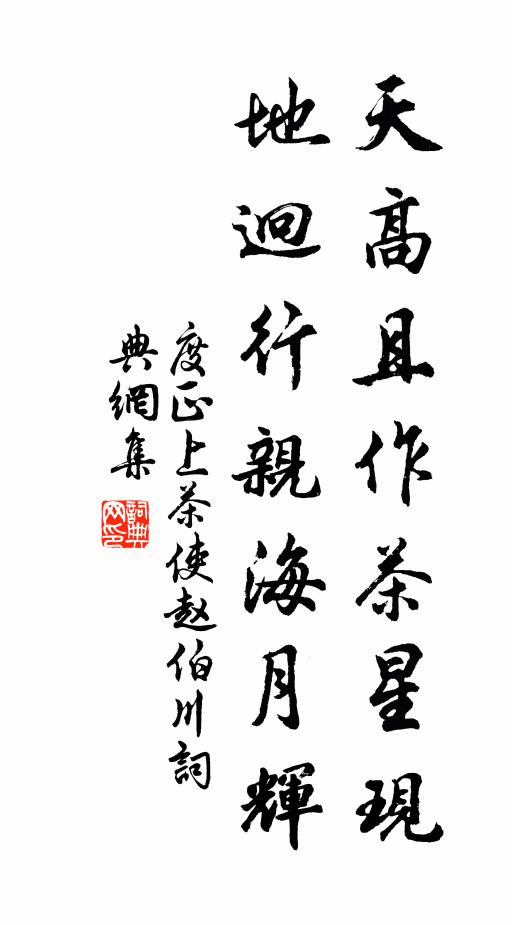 天高且作茶星現
地迥行親海月輝
度正上茶使赵伯川詞
典網集
詞典
网印